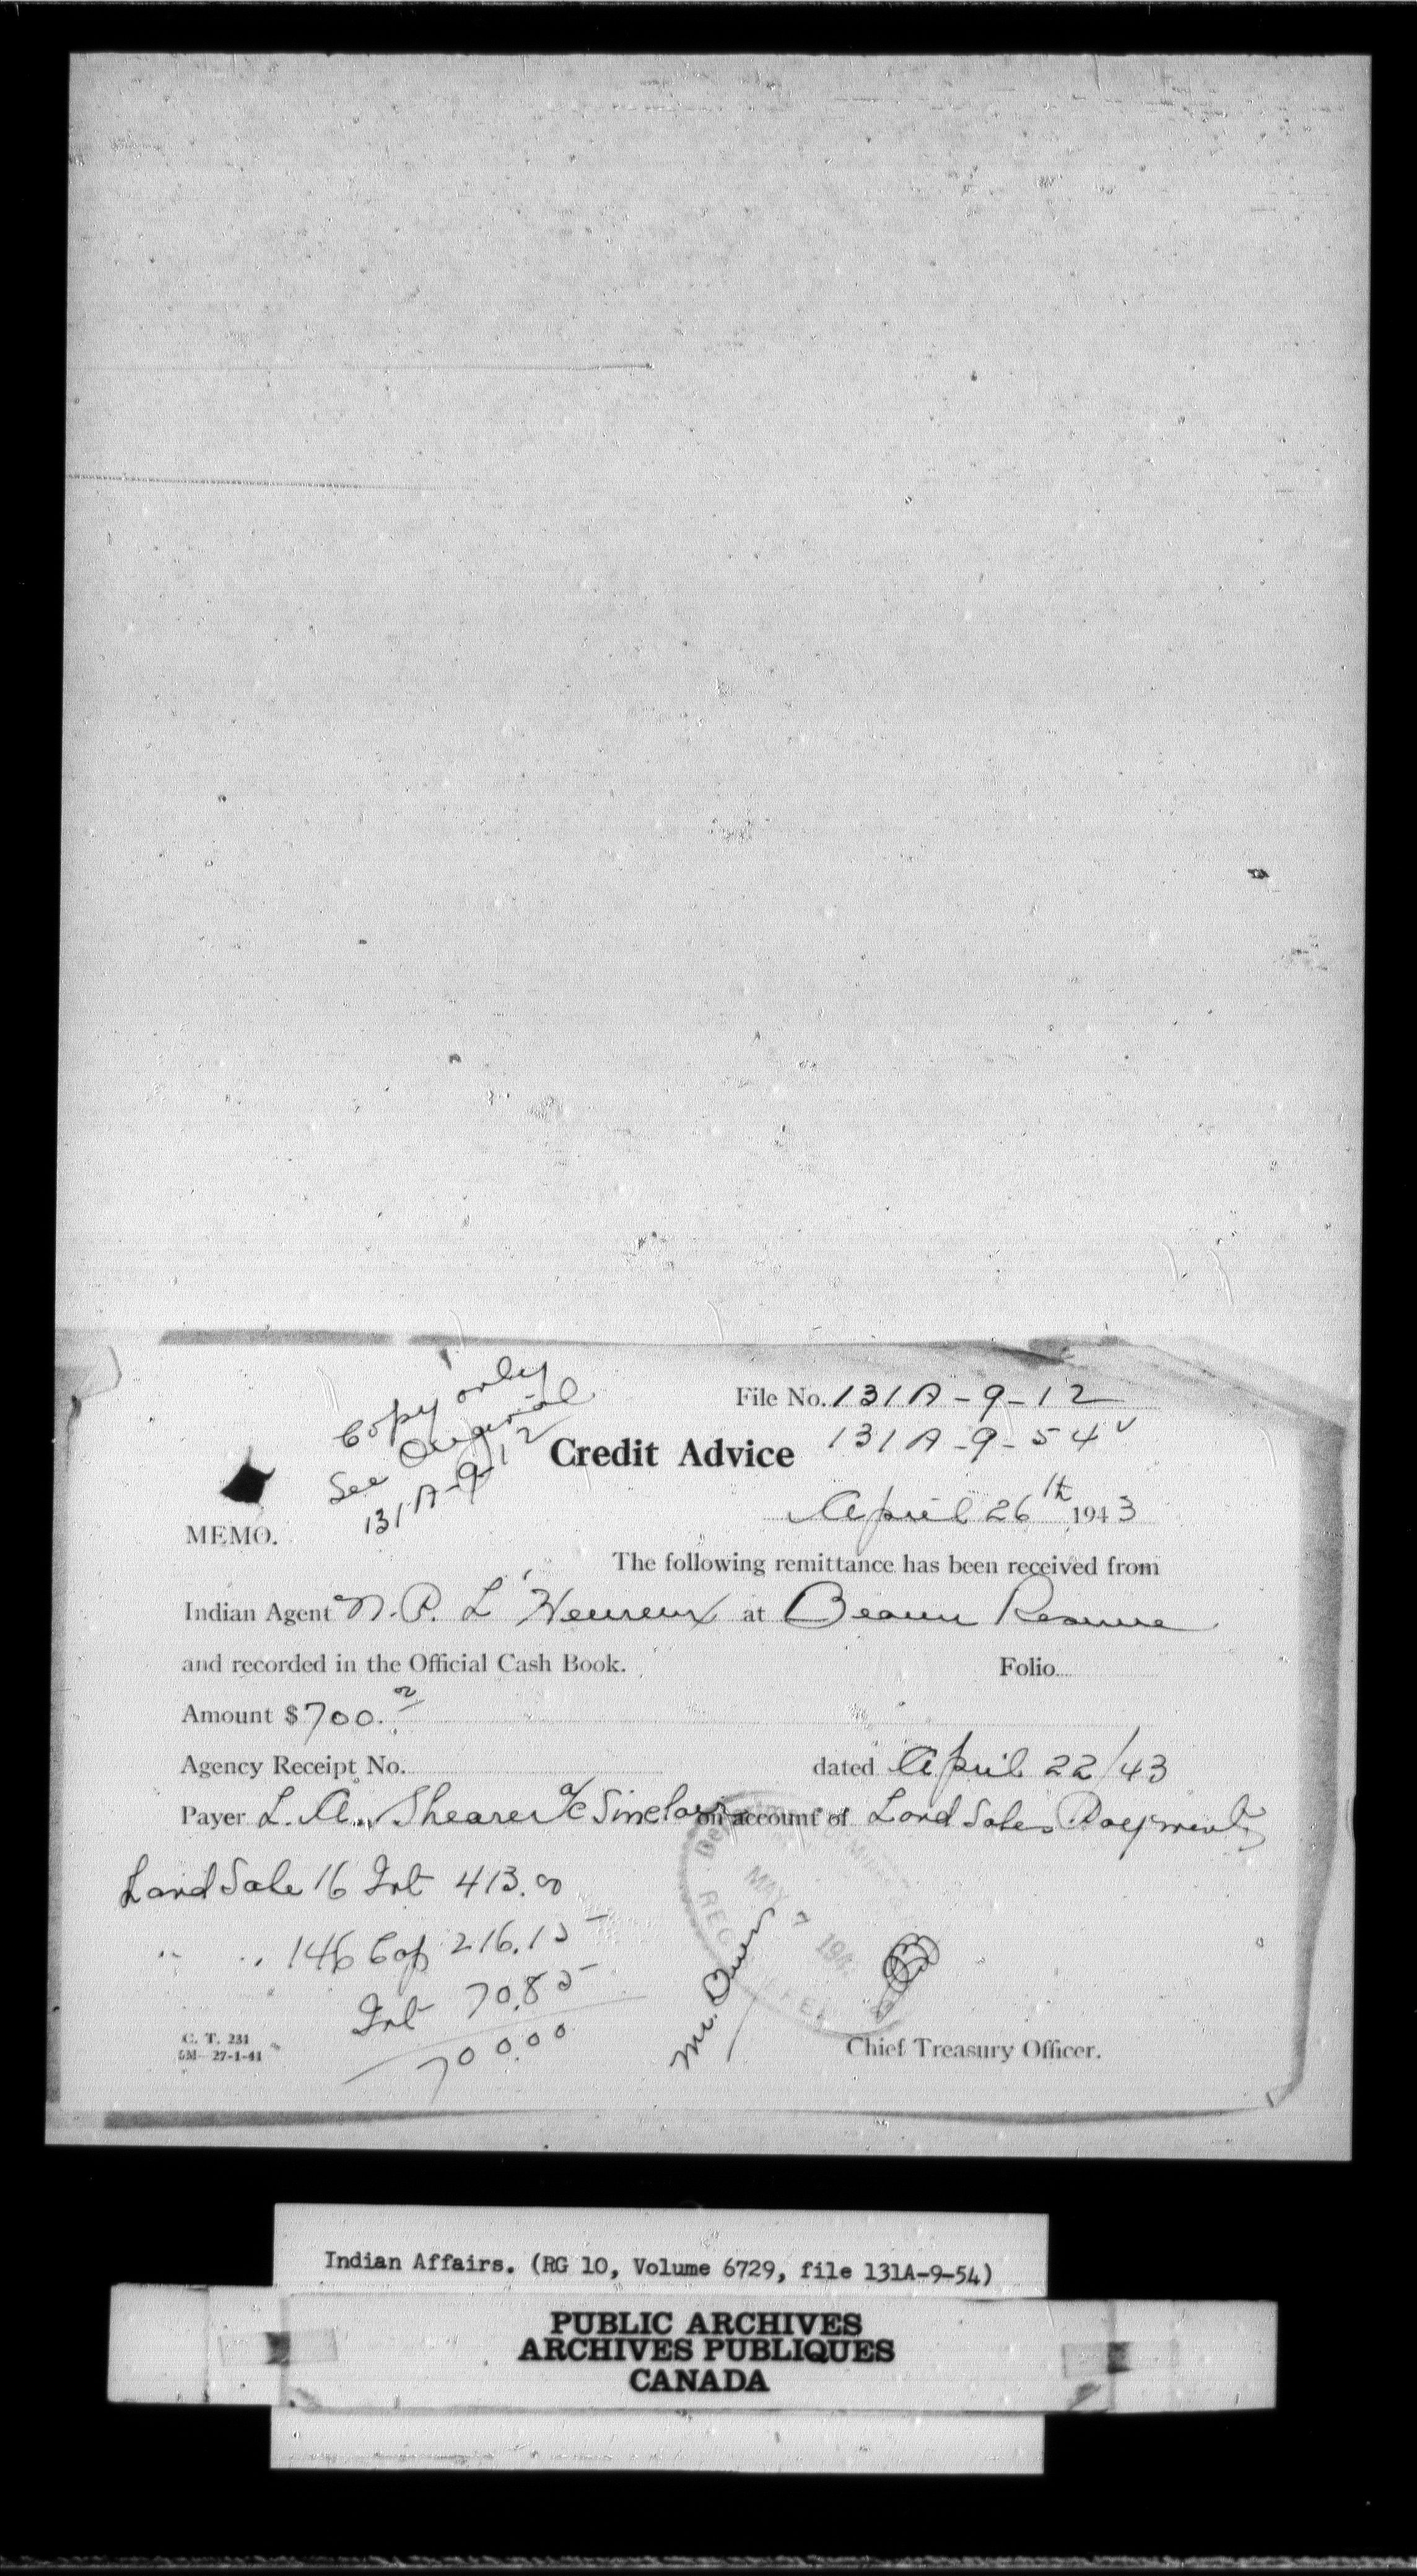 Copy only
See Original
131A-9-12
File No. 131A-9-12
131A-9-54 ✓
Credit Advice
April 26th 1943
MEMO.
The following remittance has been received from
Indian Agent N. P. L'Heureux at
and recorded in the Official Cash Book. Folio
Amount $700.
Agency Receipt No. dated April 22/43
Payer L. A. Shearer a/c Sinclair on account of Land Sales Payments
Land Sale 16 Int 413.00
" " 146 Cap 216.15
Int 70.85
700.00
MAY 7 194
REC
Mr.
Chief Treasury Officer.
C. T. 231
5M—27-1-41
Indian Affairs. (RG 10, Volume 6729, file 131A-9-54)
PUBLIC ARCHIVES
ARCHIVES PUBLIQUES
CANADA